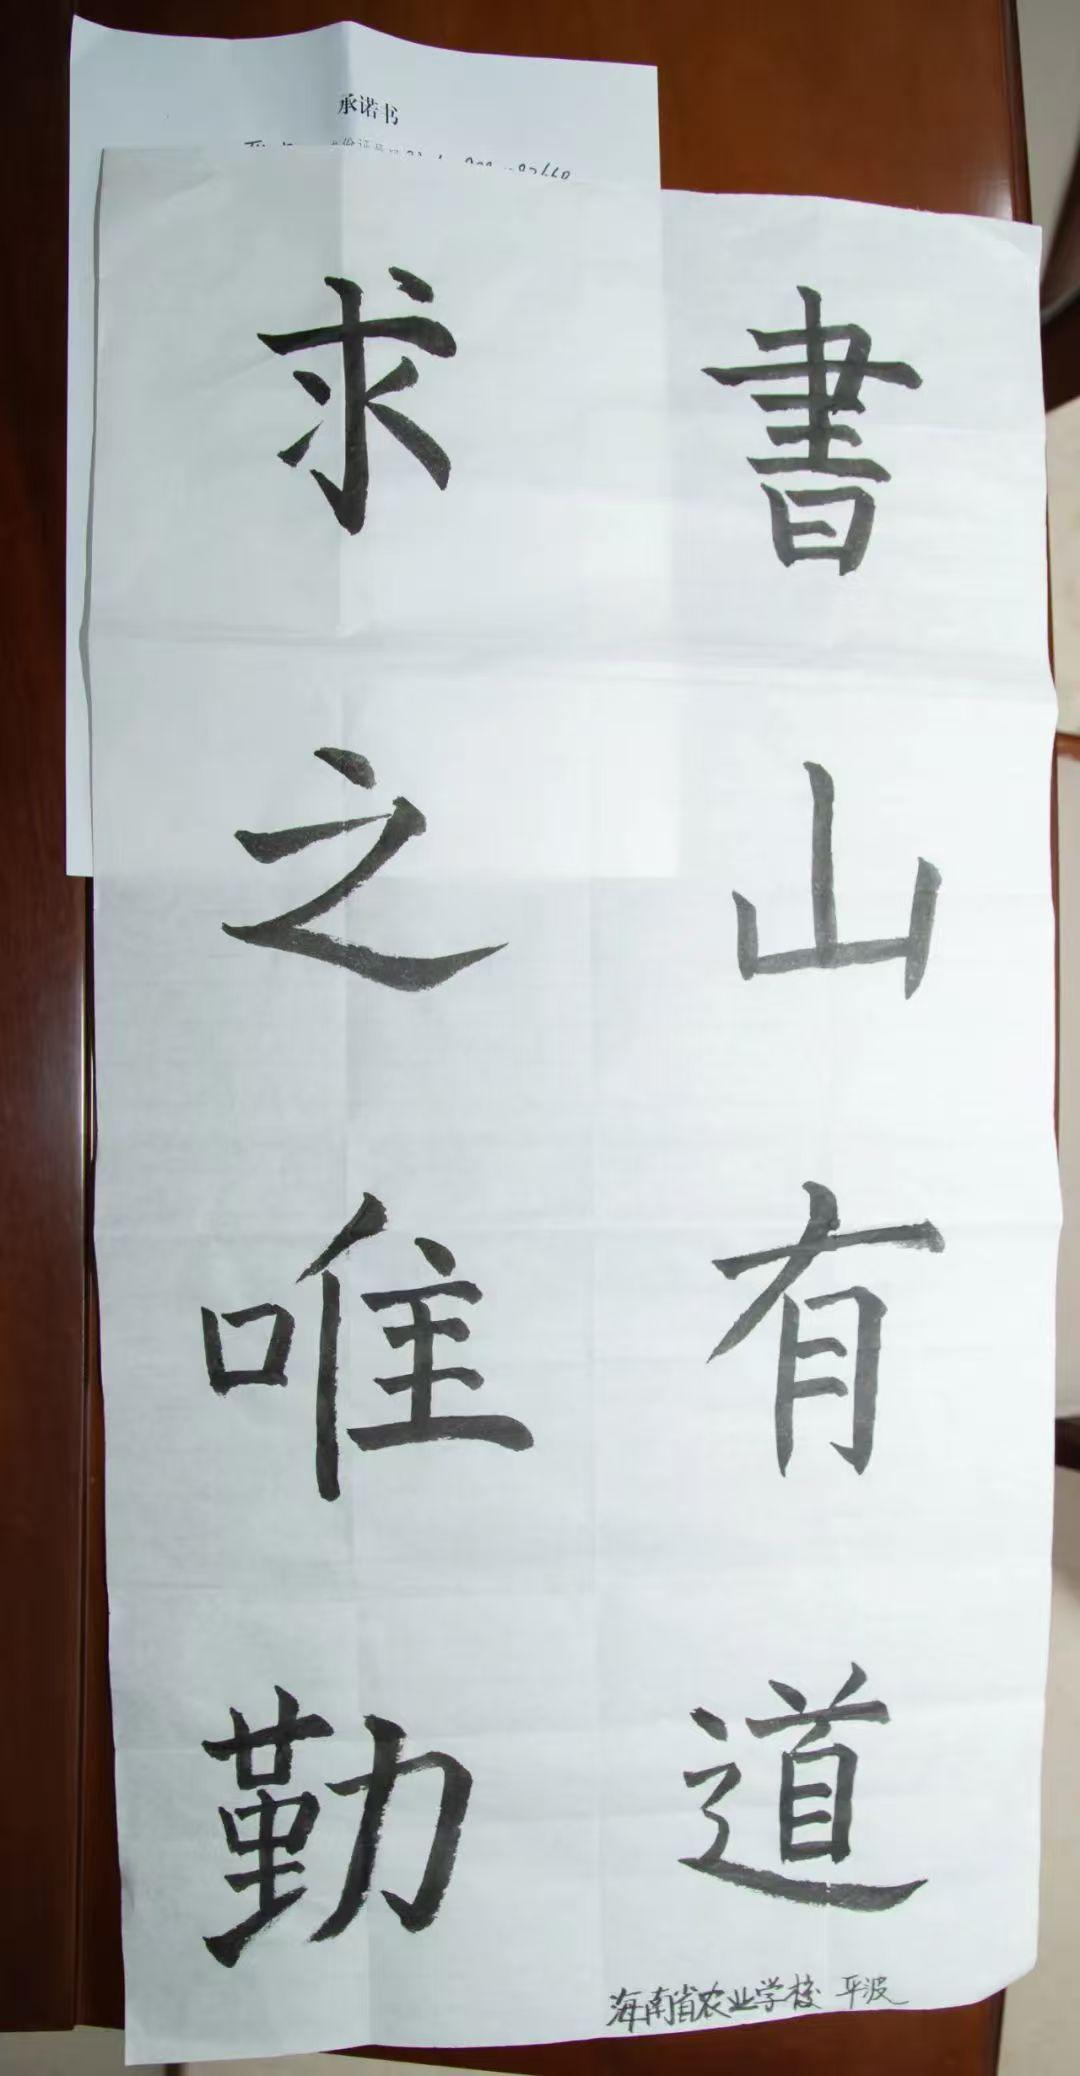 承诺书
書山有道
求之唯勤
海南省农业学校 平波